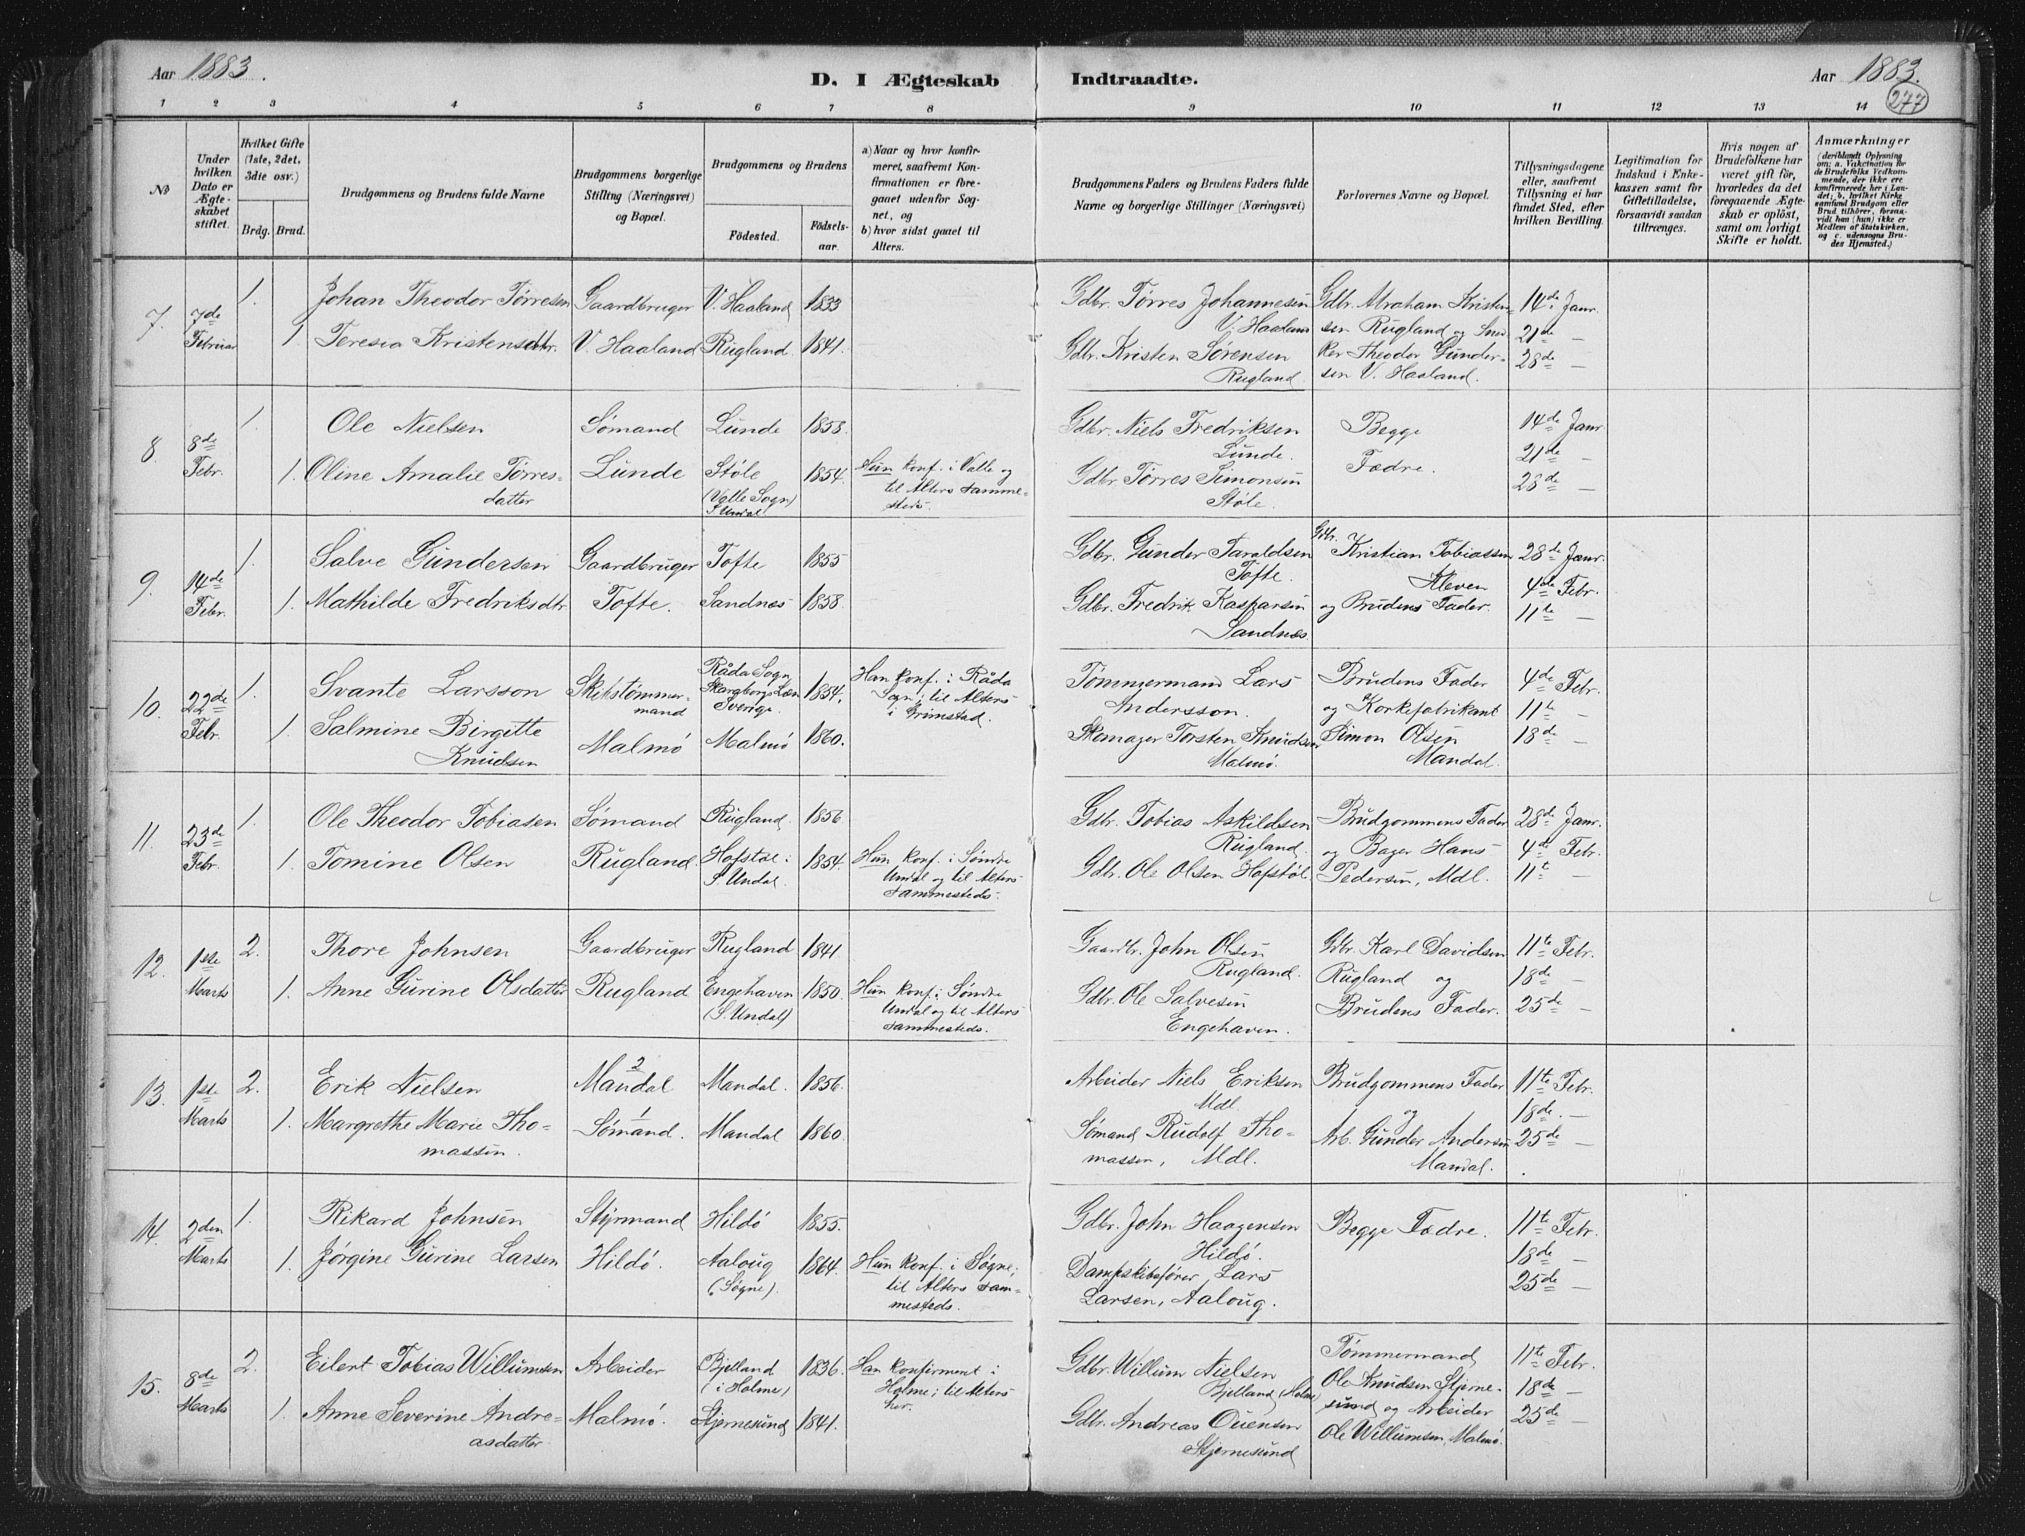 Aar 1883.
D. I Ægteskab Indtraadte.
Aar 1883.
277
1 2 3 4 5 6 7 8 9 10 11 12 13 14
No
Under hvilken Dato er Ægteskabet stiftet.
Hvilket Gifte (1ste, 2det, 3die osv.)
Brdg. Brud.
Brudgommens og Brudens fulde Navne
Brudgommens borgerlige Stilling (Næringsvei) og Bopæl.
Brudgommens og Brudens
Fødested.
Fødselsaar.
a) Naar og hvor konfirmeret, saafremt Konfirmationen er foregaaet udenfor Sognet, og
b) hvor sidst gaaet til Alters.
Brudgommens Faders og Brudens Faders fulde Navne og borgerlige Stillinger (Næringsvei)
Forlovernes Navne og Bopæl.
Tillysningsdagene eller, saafremt Tillysning ei har fundet Sted, efter hvilken Bevilling.
Legitimation for Indskud i Enkekassen samt for Giftetilladelse, forsaavidt saadan tiltrænges.
Hvis nogen af Brudefolkene har været gift før, hvorledes da det foregaaende Ægteskab er opløst, samt om lovligt Skifte er holdt.
Anmærkninger (deriblandt Oplysning om: a. Vakcination for de Brudefolks Vedkommende, der ikke ere konfirmerede her i Landet; b, hvilket Kirkesamfund Brudgom eller Brud tilhører, forsaavidt han (hun) ikke er Medlem af Statskirken, og c. udensogns Brudes Hjemsted.)
7. 7de Februar 1. Johan Theodor Tørresen Gaardbruger V. Haaland 1833 Gdbr. Tørres Johannesen Gdbr. Abraham Kristen- 14de Janr.
V. Haaland sen Rugland og Sned- 21de —
1. Teresia Kristensdtr. V. Haaland Rugland 1841. Gdbr. Kristen Sørensen ker Theodor Gunder- 28de —
Rugland. sen V. Haaland.
8. 8de Febr. 1. Ole Nielsen Sømand Lunde 1853. Gdbr. Niels Fredriksen Begge 14de Janr
Lunde. Fædre. 21de —
1. Oline Amalie Tørres- Lunde Støle 1854. Hun konf. i Valle og Gdbr. Tørres Simonsen 28de —
datter (Valle Sogn) til Alters samme- Støle.
S. Undal steds.
9. 14de Febr. 1. Salve Gundersen Gaardbruger Tofte 1855 Gdbr. Gunder Taraldsen Gdbr. Kristian Tobiassen 28de Janr.
Tofte. Kleven 4de Febr.
1. Mathilde Fredriksdtr Tofte. Sandnes 1858. Gdbr. Fredrik Kaspersen og Brudens Fader. 11te —
Sandnes
10. 22de Febr. 1. Svante Larsson Skibstømmer- Råda Sogn 1854. Han konf. i Råda Tømmermand Lars Brudens Fader 4de Febr.
mand Skaraborgs Læn Sogn; til Alters Andersson. og Korkefabrikant 11te —
Sverige. i Grimstad.
1. Salmine Birgitte Malmø Malmø 1860. Skomager Torsten Knudsen Simon Olsen 18de —
Knudsen Malmø. Mandal.
11. 23de Febr. 1. Ole Theodor Tobiasen Sømand Rugland. 1856 Gdbr. Tobias Askildsen Brudgommens Fader 28de Janr.
Rugland. og Bager Hans 4de Febr.
1. Tomine Olsen Rugland. Hofstøl i 1854. Hun konf. i Søndre Gdbr. Ole Olsen Hofstøl Pedersen, Mdl. 11te —
S. Undal. Undal og til Alters
sammesteds.
12. 1ste Marts 2. Thore Johnsen Gaardbruger Rugland 1841 Gaardbr. John Olsen Gdbr Karl Davidsen 11te Febr.
Rugland. Rugland og 18de —
1. Anne Gurine Olsdatter Rugland Engehaven 1850. Hun konf. i Søndre Gdbr. Ole Salvesen Brudens Fader. 25de —
(S. Undal) Undal og til Alters Engehaven.
sammesteds.
13. 1ste Marts 2. Erik Nielsen 2 Mandal Mandal. 1856. Arbeider Niels Eriksen Brudgommens Fader 11te Febr.
Mdl. og 18de. —
1. Margrethe Marie Tho- 1 Sømand. Mandal 1860. Sømand Rudolf Tho- Arb. Gunder Andersen 25de —
massen. massen, Mdl. Mandal.
14. 2den Marts 1. Rikard Johnsen Styrmand Hildø 1855. Gdbr. John Haagensen Begge Fædre. 11te Febr.
Hildø. 18de —
1. Jørgine Gurine Larsen Hildø. Aaloug 1864. Hun konf. i Søgne; Dampskibsfører Lars 25de —
(Søgne). til Alters sam- Larsen, Aaloug.
mesteds.
15. 8de Marts 2. Eilert Tobias Willumsen Arbeider Bjelland 1836. Han konfirmert i Gdbr. Willum Nielsen Tømmermand 11te Febr.
(i Holme) Holme; til Alters Bjelland (Holme) Ole Knudsen Stjerne- 18de —
her. sund og Arbeider
1. Anne Severine Andre- Malmø. Stjernesund 1841. Gdbr. Andreas Ouensen Ole Willumsen, Malmø. 25de —
asdatter Stjernesund